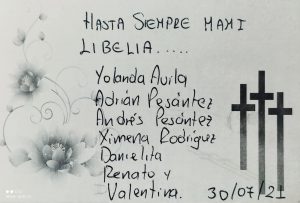 HASTA SIEMPRE MAMI
LIBELIA.....
Yolanda Avila
Adrián Pesántez
Andrés Pesántez
Ximena Rodríguez
Danielita
Renato y
Valentina. 30/07/21